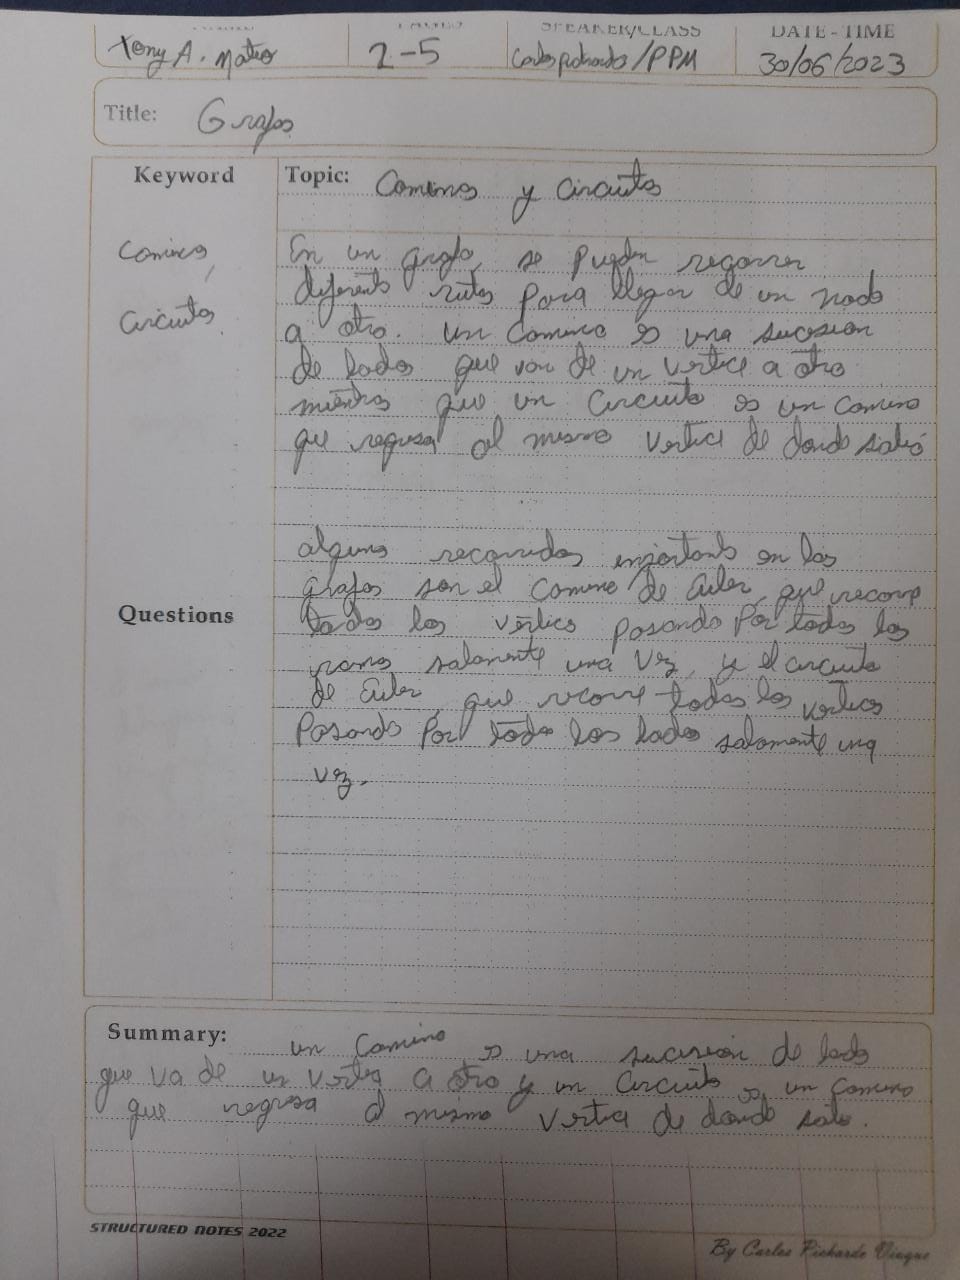 SPEAKER/CLASS DATE-TIME
Tony A. Mateo 2-5 /PPM 30/06/2023
Title: Grafos
Keyword Topic: Caminos y circuitos
Caminos,
Circuitos
En un grafo, se pueden recorrer
diferents rutas para llegar de un nodo
a otro. un camino es una sucesion
de lados que van de un vertice a otro
mientras que un circuito es un camino
que regresa al mismo vertice de donde salió
algunos recorridos importants en los
grafos son el camino de Euler, que recorre
Questions
todos los vertices pasando por todos los
ramas solamente una vez, y el circuito
de Euler, que recorre todos los vertices
Pasando Por todos los lados solamente una
vez.
Summary: un camino es una sucesión de lados
que va de un vertice a otro y un circuito es un camino
que regresa al mismo vertice de donde salio.
STRUCTURED NOTES 2022
By Carlos Pichardo Viuque